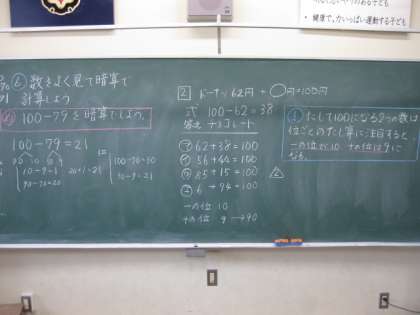 健康で、力いっぱい運動する子ども
数をよく見て暗算で
計算しよう
100-79を暗算でしよう。
100-79=21
10-9=1
90-70=20
20+1=21
100-70=30
30-9=21
2 ドーナツ62円 + ○円=100円
式 100-62=38
答え チョコレート
ア 62+38=100
イ 56+44=100
ウ 85+15=100
エ 6 +94=100
一の位 10
十の位 9→90
たして100になる2つの数は
位ごとのたし算に注目すると
一の位が10 十の位は9に
なる。